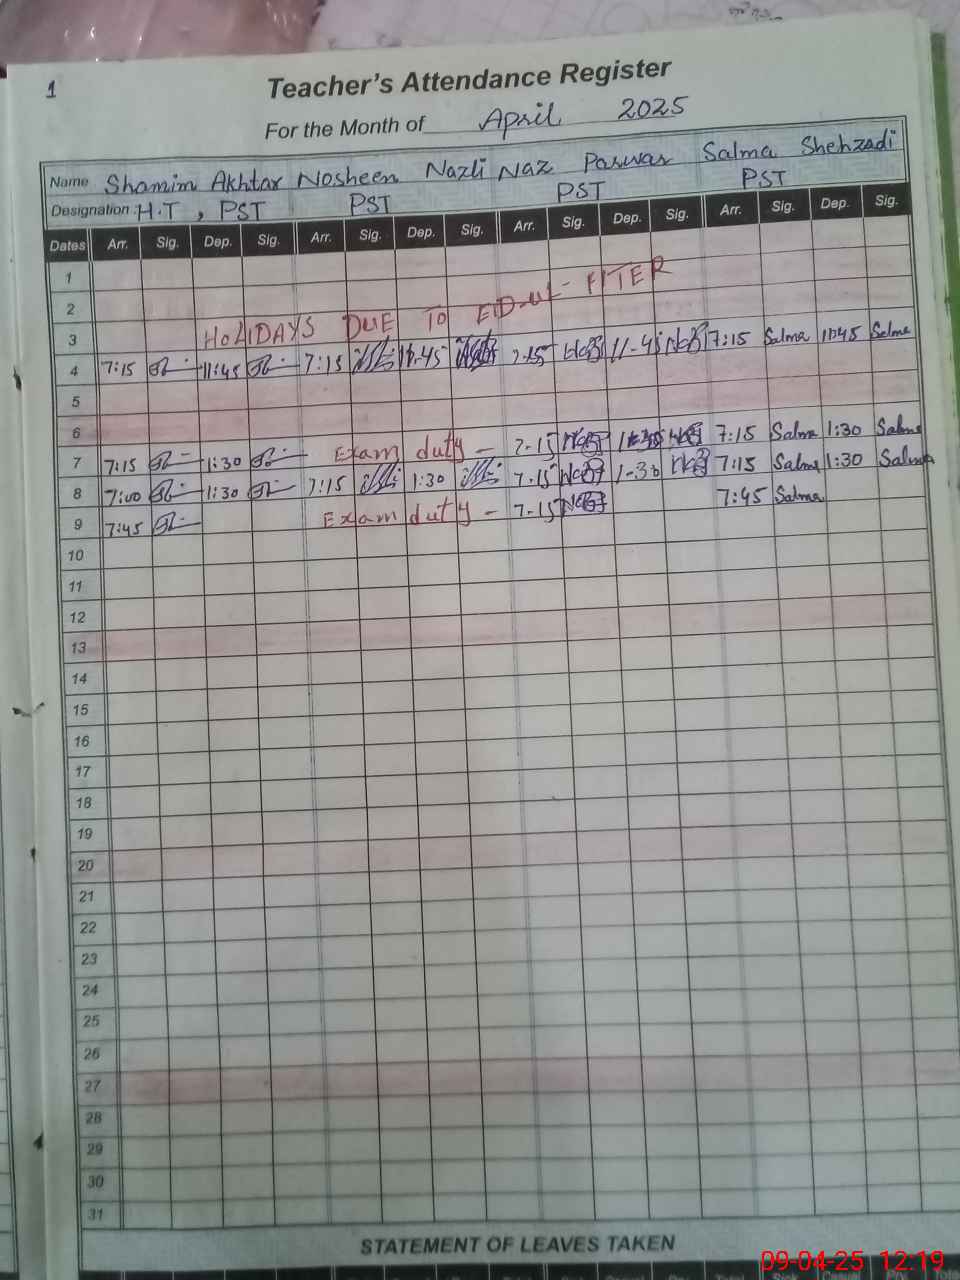 1
Teacher's Attendance Register
For the Month of April 2025
Name Shamim Akhtar Nosheen Nazli Naz Parwar Salma Shehzadi
Designation : H.T , PST PST PST PST
Dates Arr. Sig. Dep. Sig. Arr. Sig. Dep. Sig. Arr. Sig. Dep. Sig. Arr. Sig. Dep. Sig.
1
2
HOLIDAYS DUE TO EID-ul-FITER
3
4 7:15 11:45 7:15 11-45 7-15 11-45 7:15 Salma 11:45 Salma
5
6
7 7:15 1:30 Exam duty - 7-15 7:15 Salma 1:30 Salma
8 7:00 1:30 7:15 1:30 7-15 1-30 7:15 Salma 1:30 Salma
9 7:45 Exam duty - 7-15 7:45 Salma
10
11
12
13
14
15
16
17
18
19
20
21
22
23
24
25
26
27
28
29
30
31
STATEMENT OF LEAVES TAKEN
09-04-25 12:19